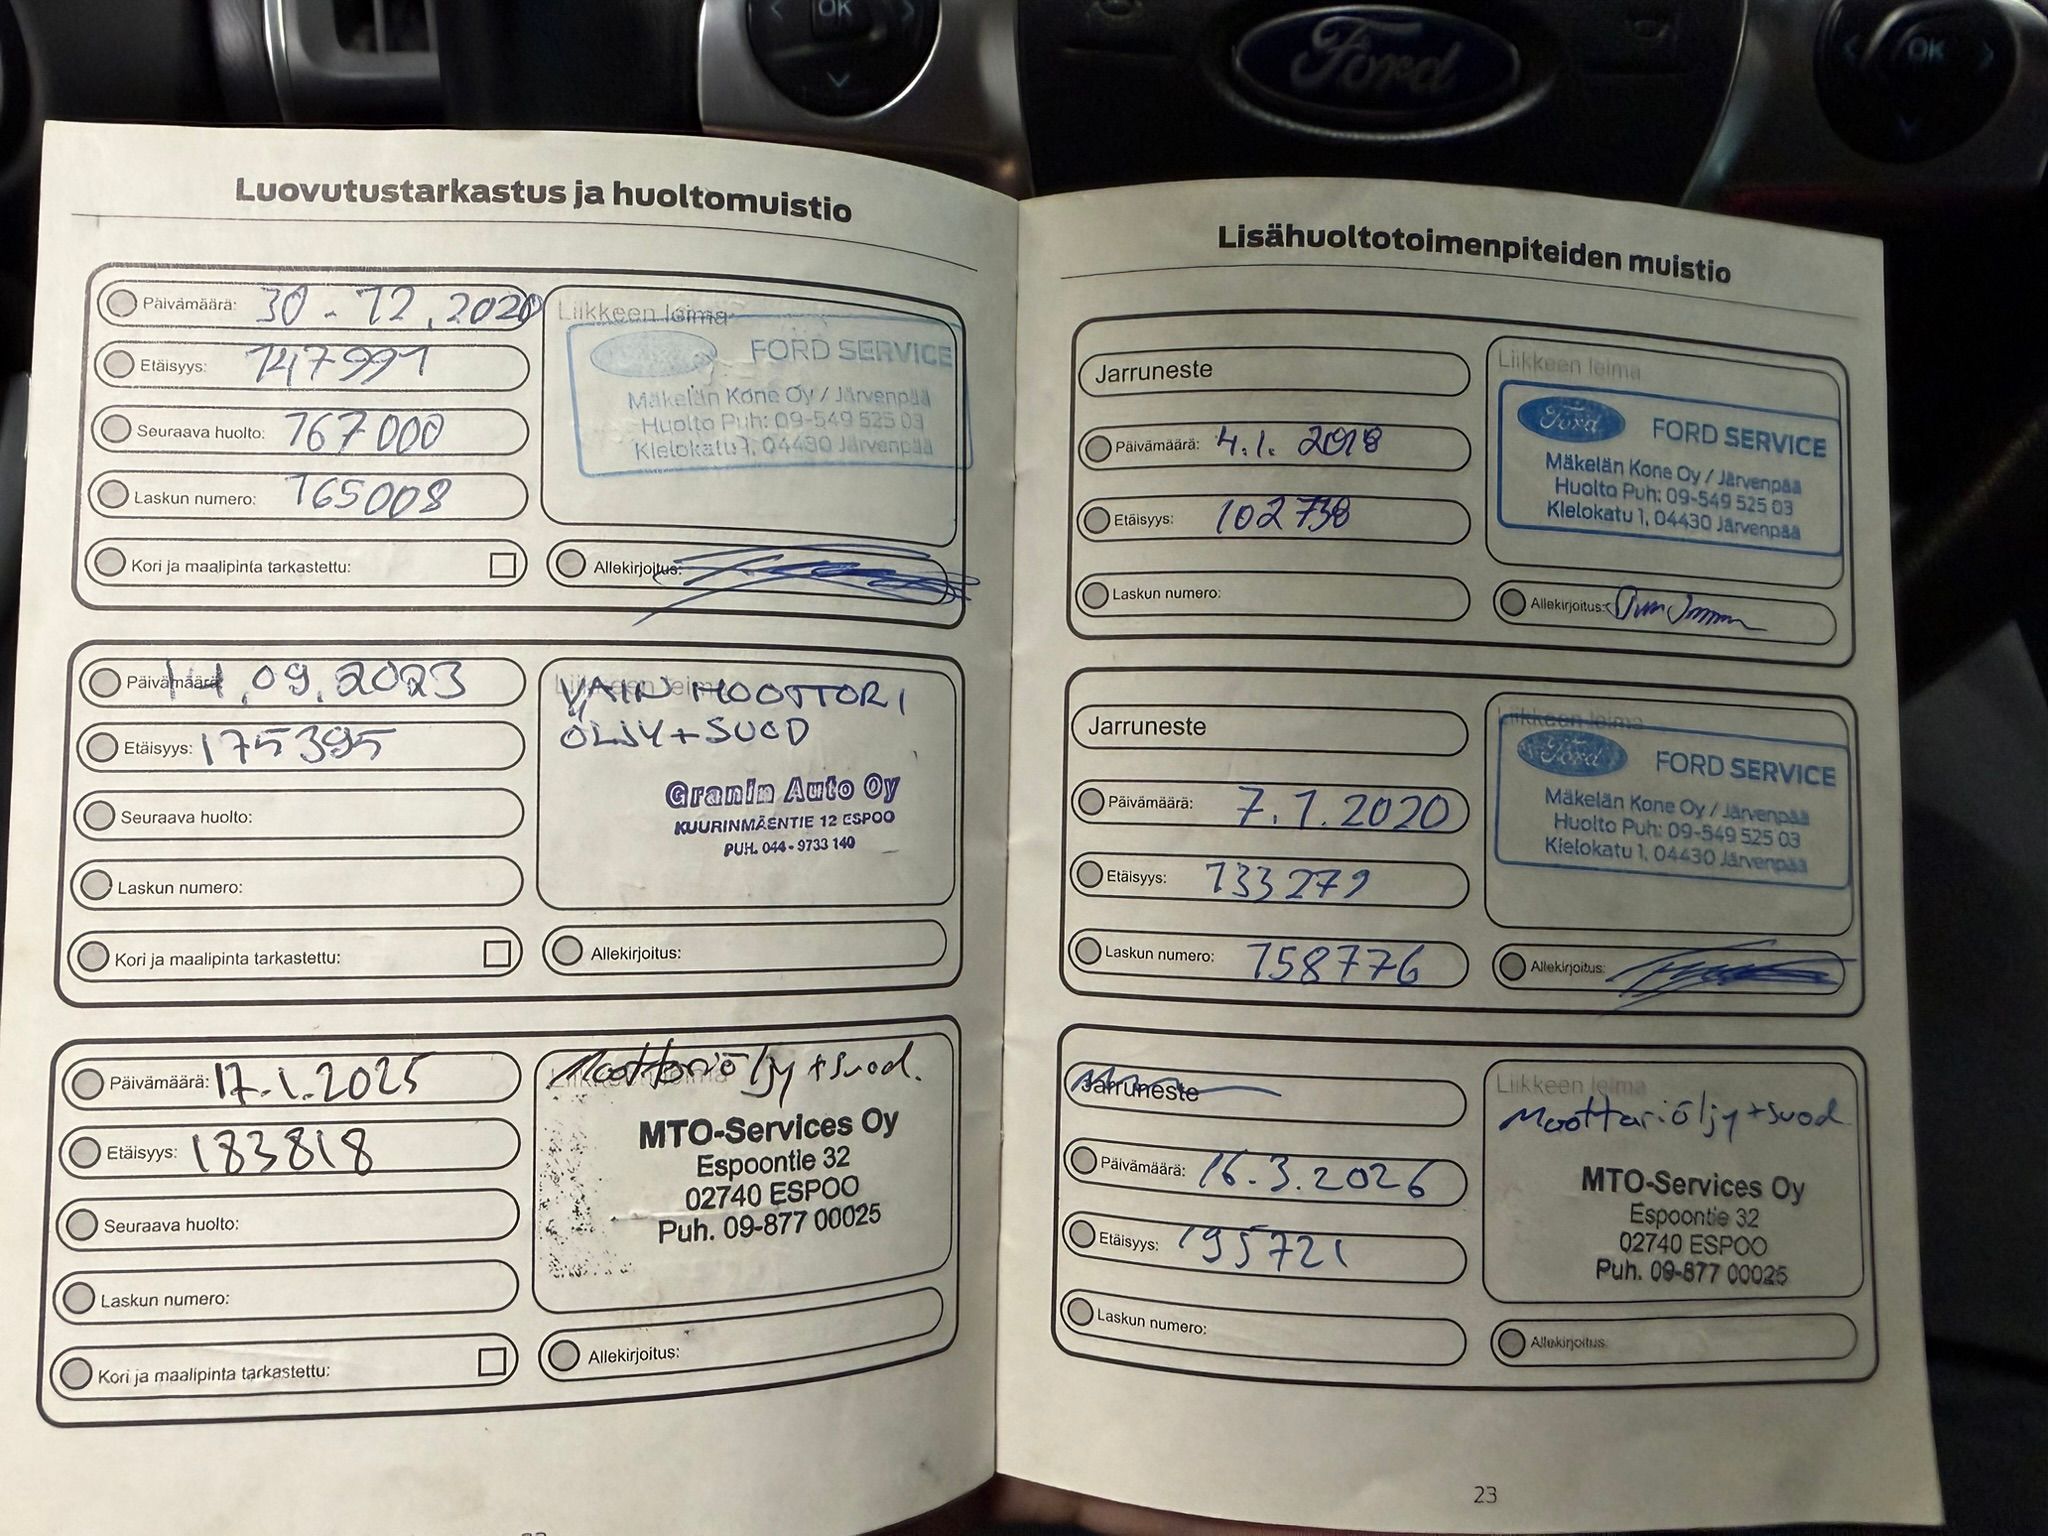 OK
Ford
OK
Luovutustarkastus ja huoltomuistio
Päivämäärä: 30-12.2020
Etäisyys: 147991
Seuraava huolto: 167000
Laskun numero: 165008
Kori ja maalipinta tarkastettu:
Liikkeen leima
FORD SERVICE
Mäkelän Kone Oy / Järvenpää
Huolto Puh: 09-549 525 03
Kielokatu 1, 04430 Järvenpää
Allekirjoitus:
Päivämäärä: 14.09.2023
Etäisyys: 175395
Seuraava huolto:
Laskun numero:
Kori ja maalipinta tarkastettu:
Liikkeen leima
VAIN MOOTTORI
ÖLJY+SUOD
Granin Auto Oy
KUURINMÄENTIE 12 ESPOO
PUH. 044-9733 140
Allekirjoitus:
Päivämäärä: 17.1.2025
Etäisyys: 183818
Seuraava huolto:
Laskun numero:
Kori ja maalipinta tarkastettu:
Liikkeen leima
Moottoriöljy+suod.
MTO-Services Oy
Espoontie 32
02740 ESPOO
Puh. 09-877 00025
Allekirjoitus:
Lisähuoltotoimenpiteiden muistio
Jarruneste
Päivämäärä: 4.1.2018
Etäisyys: 102738
Laskun numero:
Liikkeen leima
Ford FORD SERVICE
Mäkelän Kone Oy / Järvenpää
Huolto Puh: 09-549 525 03
Kielokatu 1, 04430 Järvenpää
Allekirjoitus:
Jarruneste
Päivämäärä: 7.1.2020
Etäisyys: 133279
Laskun numero: 158776
Liikkeen leima
Ford FORD SERVICE
Mäkelän Kone Oy / Järvenpää
Huolto Puh: 09-549 525 03
Kielokatu 1, 04430 Järvenpää
Allekirjoitus:
Jarruneste
Päivämäärä: 16.3.2026
Etäisyys: 195721
Laskun numero:
Liikkeen leima
Moottoriöljy+suod
MTO-Services Oy
Espoontie 32
02740 ESPOO
Puh. 09-877 00025
Allekirjoitus:
23